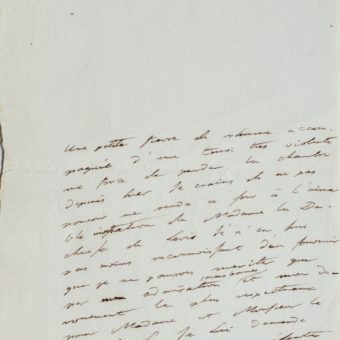 une petite fievre de rhume accom
pagnée d'une toux très violente
me force de garder la chambre
depuis hier je crains de ne pas
pouvoir me rendre ce soir à l'aima
ble invitation de Madame la Du
chesse de Levis je n'en suis
pas moins reconnaissant d'un souvenir
que je ne pouvois meriter que
par mon admiration et mon de
vouement le plus respectueux
pour Madame et Monsieur le
je lui demande